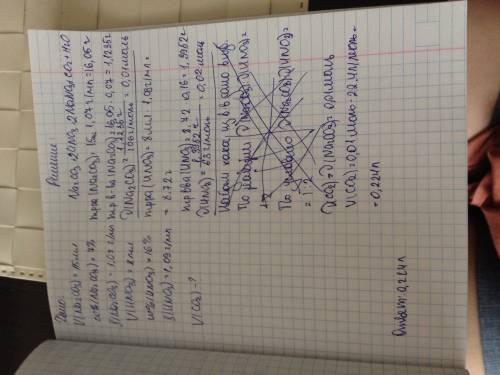 Дано:
V(Na2CO3)=15мл
ω%(Na2CO3)=7%
ρ(Na2CO3)=1,07 г/мл
V(HNO3)=8мл
ω%(HNO3)=16%
ρ(HNO3)=1,09г/мл
V(CO2)-?
Решение:
Na2CO3+2HNO3=2NaNO3+CO2+H2O
mр-ра(Na2CO3)=15мл·1,07г/мл=16,05г
mр.в-ва(Na2CO3)=16,05·0,07=1,1235г
ν(Na2CO3)=1,1235г/106г/моль=0,01моль
mр-ра(HNO3)=8мл·1,09г/мл=
=8,72г
mр.в-ва(HNO3)=8,72·0,16=1,3952г
ν(HNO3)=1,3952г/63г/моль=0,02моль
По реакции ν(Na2CO3):ν(HNO3)=
1:2
По условию ν(Na2CO3):ν(HNO3)=
=1:2
ν(CO2)=ν(Na2CO3)=0,01моль
V(CO2)=0,01моль·22,4л/моль=
=0,224л
Ответ: 0,224л